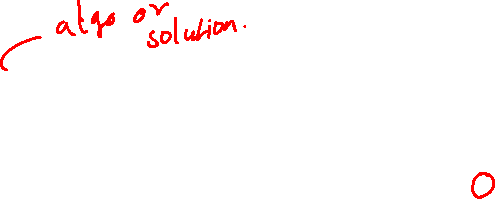 algo or
solution.